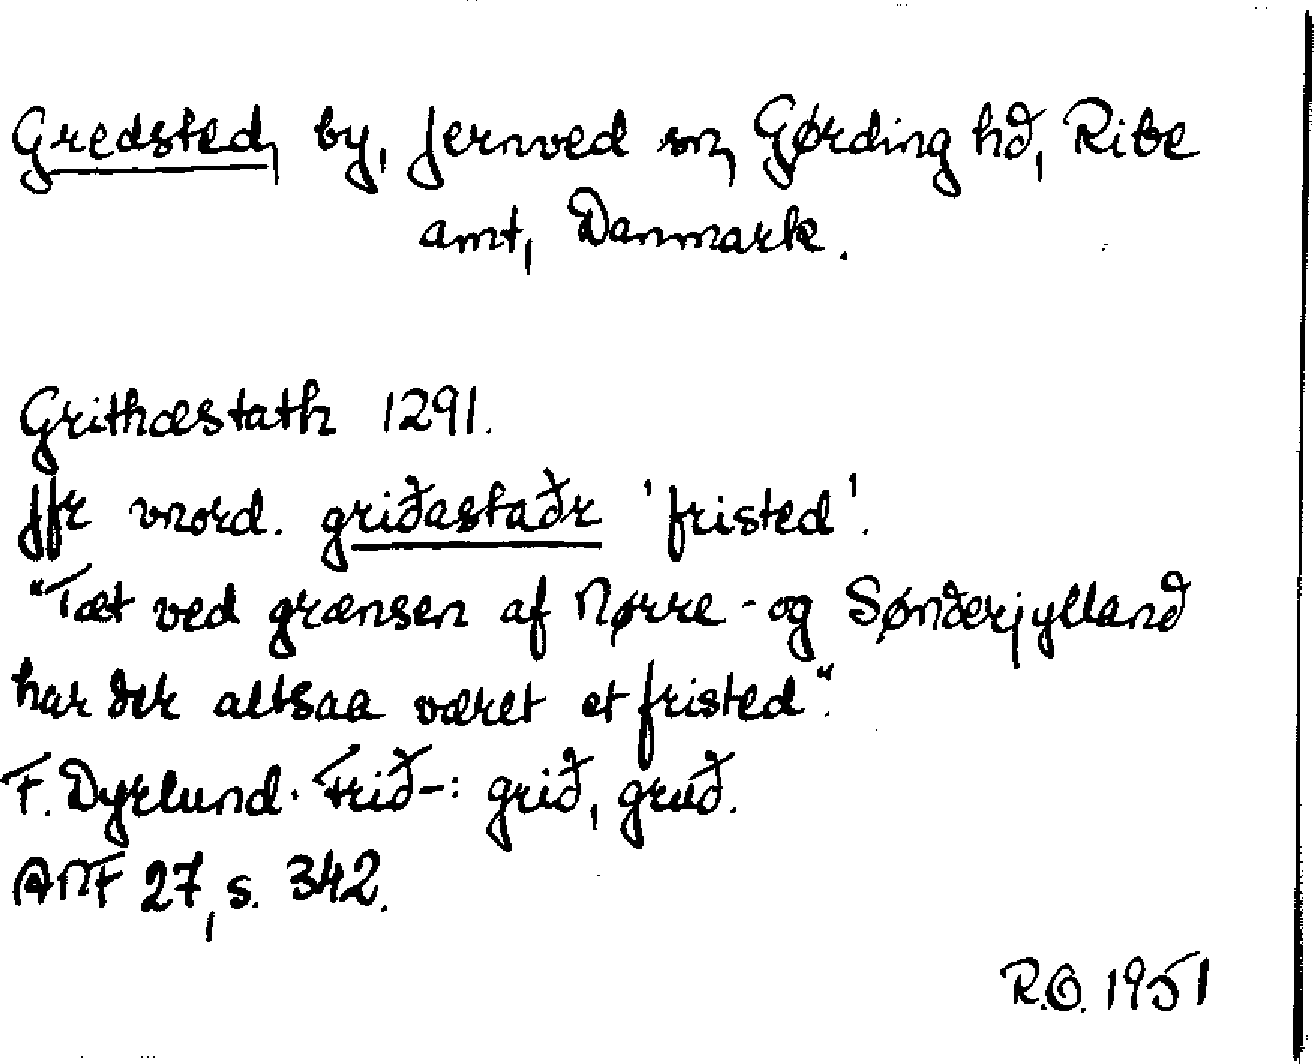 Gredsted, by, Jernved sn, Gørding hd, Ribe
amt, Danmark.
Grithæstath 1291.
Jfr vnord. griðastaðr 'fristed'.
"Tæt ved grænsen af Nørre- og Sønderjylland
har der altsaa været et fristed".
F. Dyrlund. Frið-: grið, gruð.
ANF 27, s. 342.
R.O. 1951